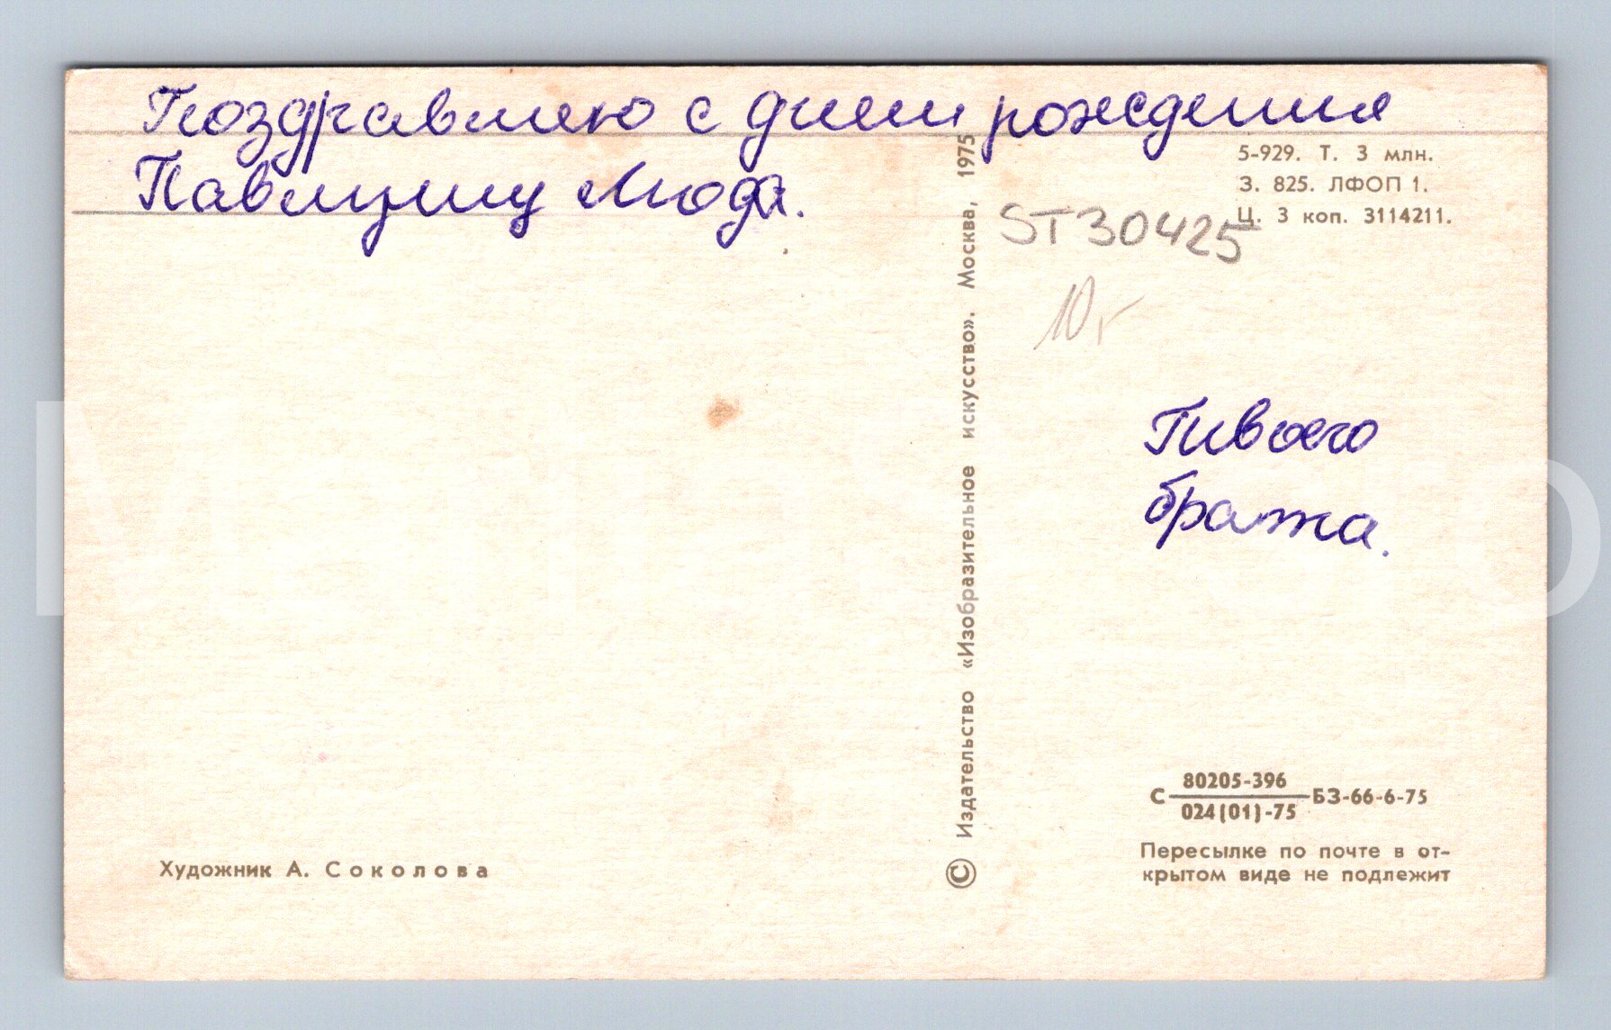 Поздравляю с днем рождения
Люда.
5-929. Т. 3 млн.
З. 825. ЛФОП 1.
Ц. 3 коп. 3114211.
ST30425
10,-
© Издательство «Изобразительное искусство». Москва, 1975
брата.
80205-396
С БЗ-66-6-75
024(01)-75
Пересылке по почте в от-
крытом виде не подлежит
Художник А. Соколова